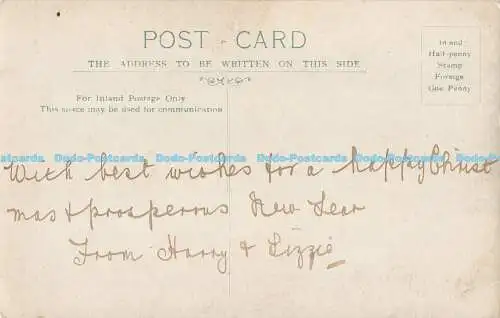 POST CARD
THE ADDRESS TO BE WRITTEN ON THIS SIDE
Inland
Half-penny
Stamp
Foreign
One Penny
For Inland Postage Only
This space may be used for communication
Dodo-Postcards Dodo-Postcards Dodo-Postcards Dodo-Postcards Dodo-Postcards
With best wishes for a happy Christ
mas & prosperous New Year
From Harry & Lizzie